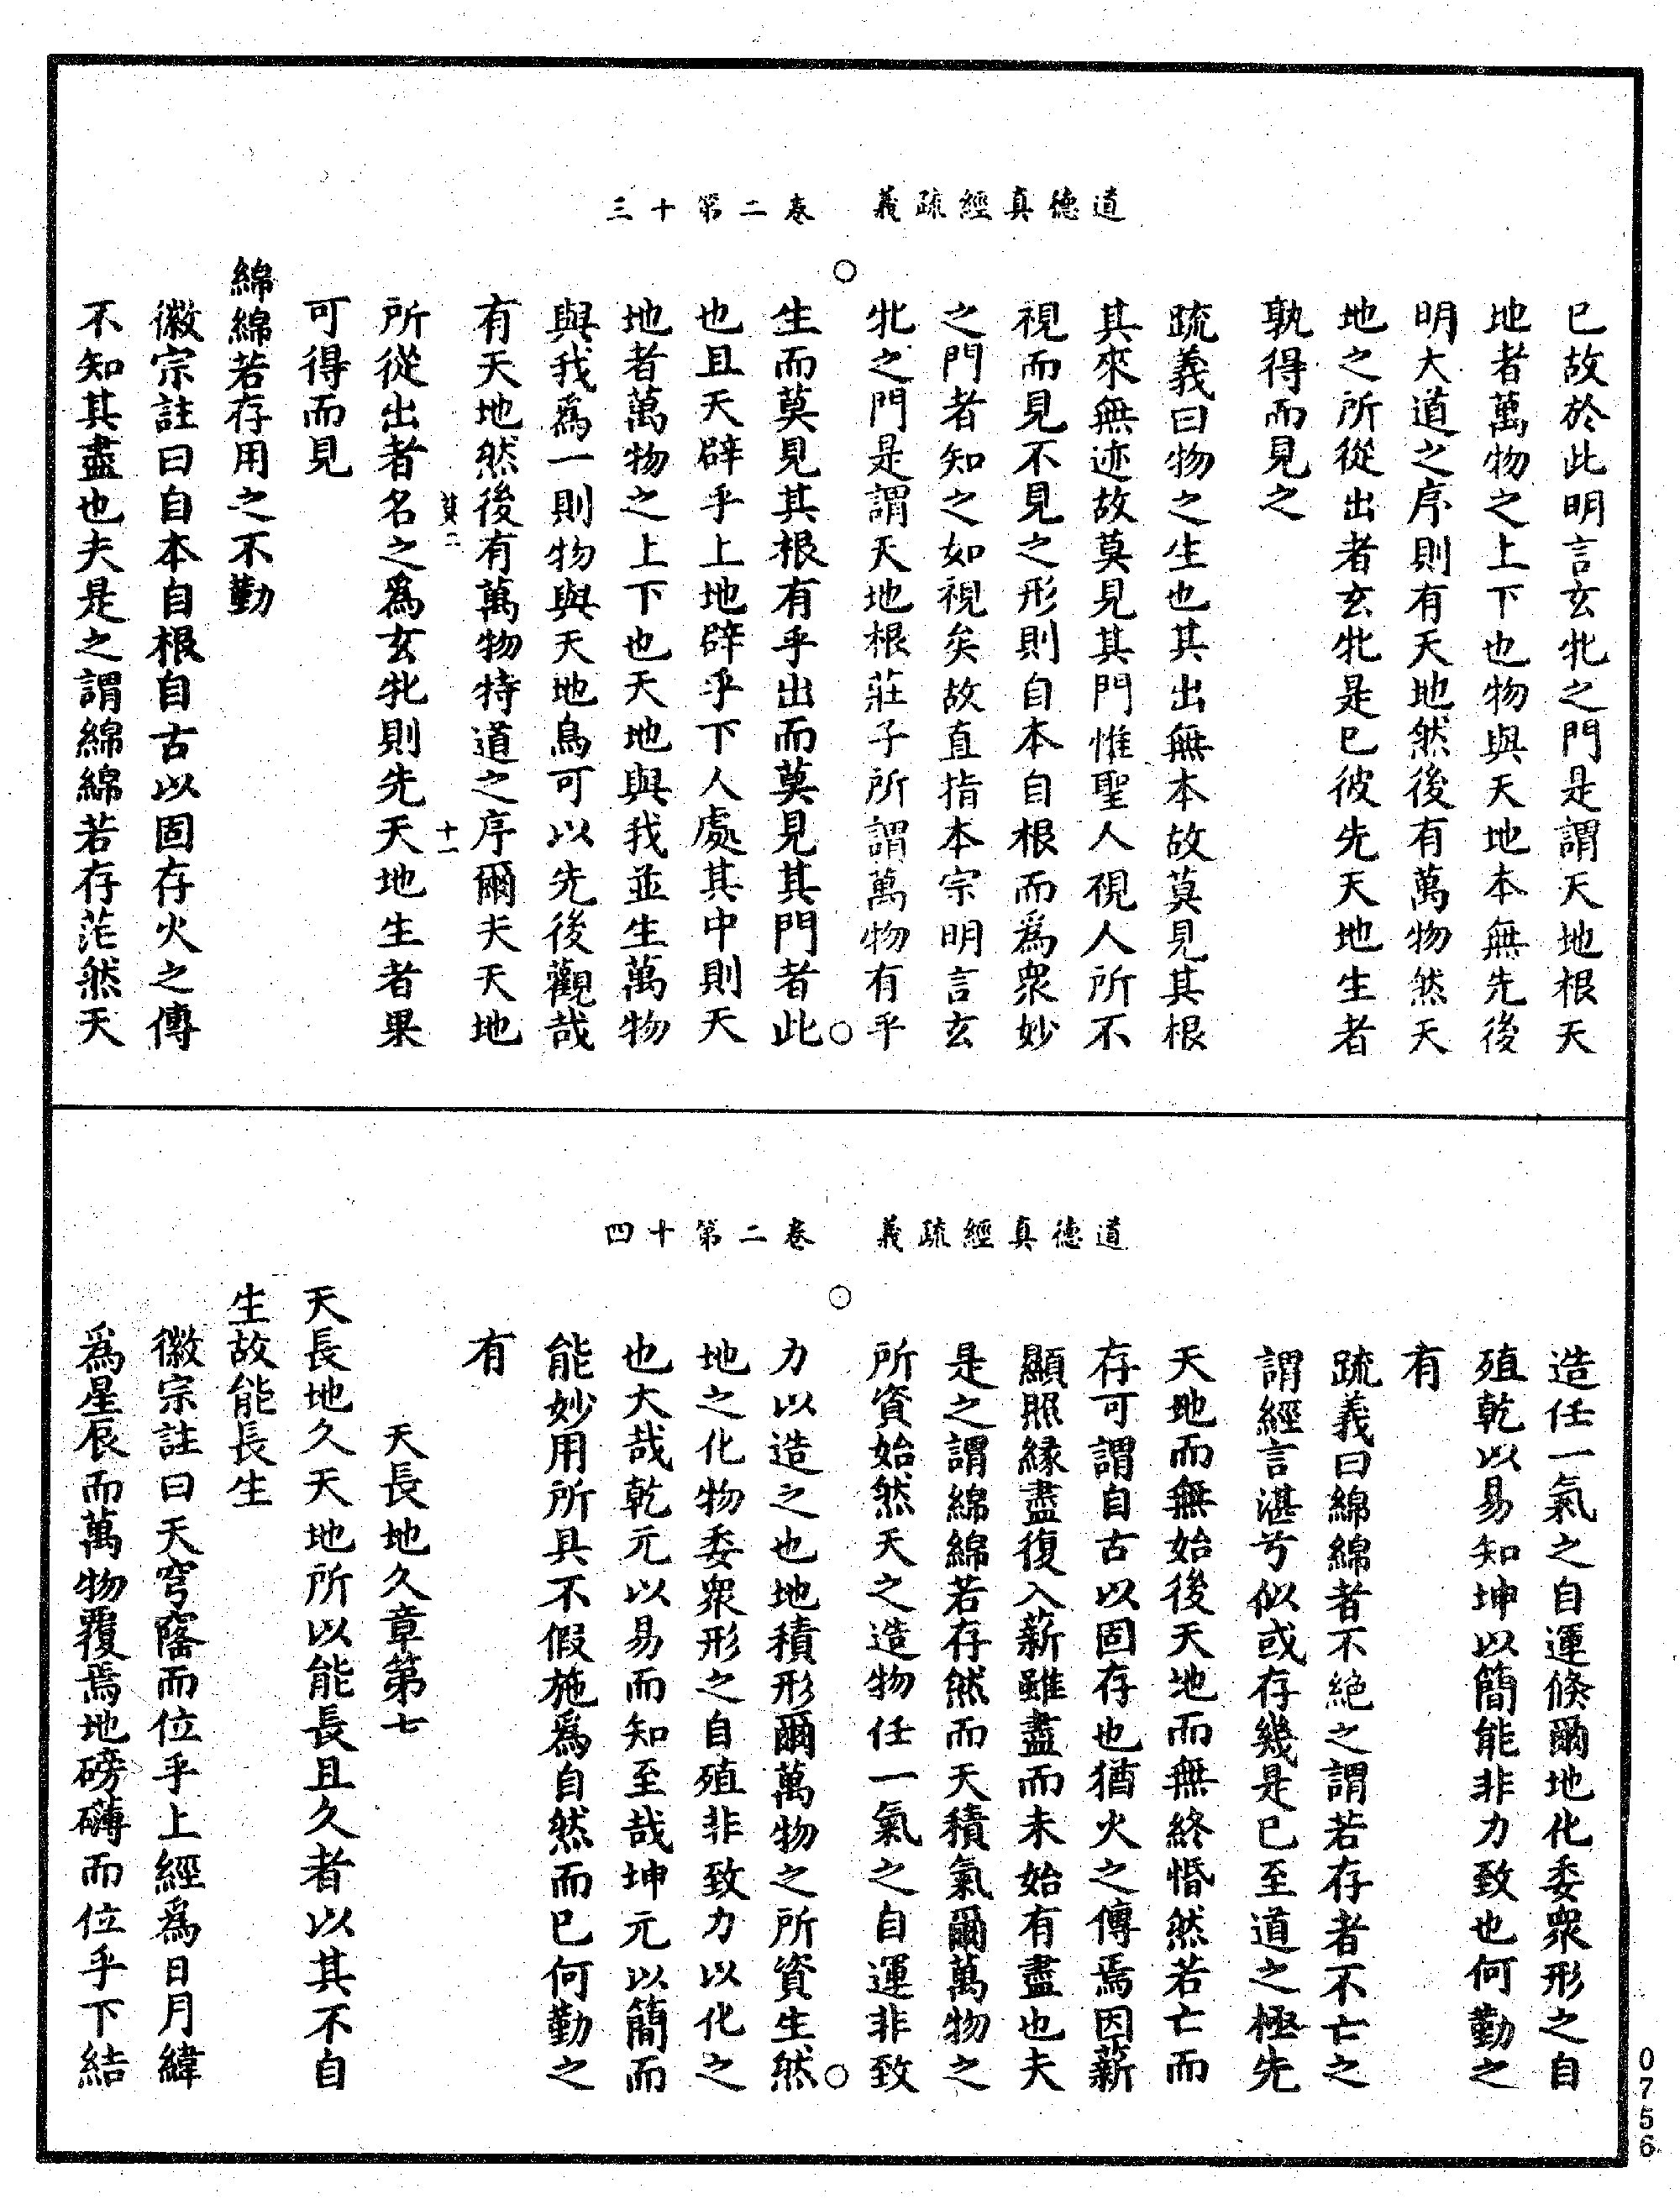 道德真經疏義　卷二第十三
已故於此明言玄牝之門是謂天地根天
地者萬物之上下也物與天地本無先後
明大道之序則有天地然後有萬物然天
地之所從出者玄牝是已彼先天地生者
孰得而見之
疏義曰物之生也其出無本故莫見其根
其來無迹故莫見其門惟聖人視人所不
視而見不見之形則自本自根而爲衆妙
之門者知之如視矣故直指本宗明言玄
牝之門是謂天地根莊子所謂萬物有乎
生而莫見其根有乎出而莫見其門者此
也且天辟乎上地辟乎下人處其中則天
地者萬物之上下也天地與我並生萬物
與我爲一則物與天地烏可以先後觀哉
有天地然後有萬物特道之序爾夫天地
莫二　十一
所從出者名之爲玄牝則先天地生者果
可得而見
綿綿若存用之不勤
徽宗註曰自本自根自古以固存火之傳
不知其盡也夫是之謂綿綿若存茫然天
道德真經疏義　卷二第十四
造任一氣之自運倏爾地化委衆形之自
殖乾以易知坤以簡能非力致也何勤之
有
疏義曰綿綿者不絶之謂若存者不亡之
謂經言湛兮似或存幾是已至道之極先
天地而無始後天地而無終惛然若亡而
存可謂自古以固存也猶火之傳焉因薪
顯照緣盡復入薪雖盡而未始有盡也夫
是之謂綿綿若存然而天積氣爾萬物之
所資始然天之造物任一氣之自運非致
力以造之也地積形爾萬物之所資生然
地之化物委衆形之自殖非致力以化之
也大哉乾元以易而知至哉坤元以簡而
能妙用所具不假施爲自然而已何勤之
有
天長地久章第七
天長地久天地所以能長且久者以其不自
生故能長生
徽宗註曰天穹窿而位乎上經爲日月緯
爲星辰而萬物覆焉地磅礴而位乎下結
0756